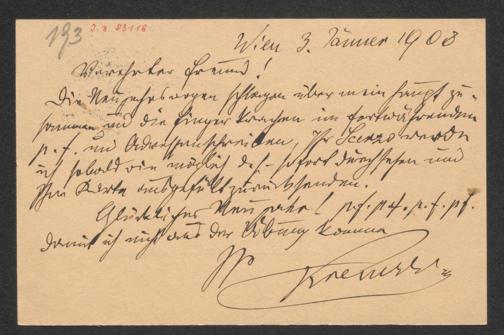 193 I.N. 83118
Wien 3. Jänner 1908
Verehrter Freund!
Die Neujahrswogen schlagen über mein Haupt zu-
sammen und die Finger krachen im fortwährenden
p. f. und Adressenschreiben, Ihr Scenzo werde
ich sobald wie möglich d. h. sofort durchsehen und
Ihre Karte ausgefüllt zurücksenden.
Glückliches Neujahr! p.f. p.f. p.f. p.f.
damit ich nicht aus der Übung komme
Ihr
Kremser